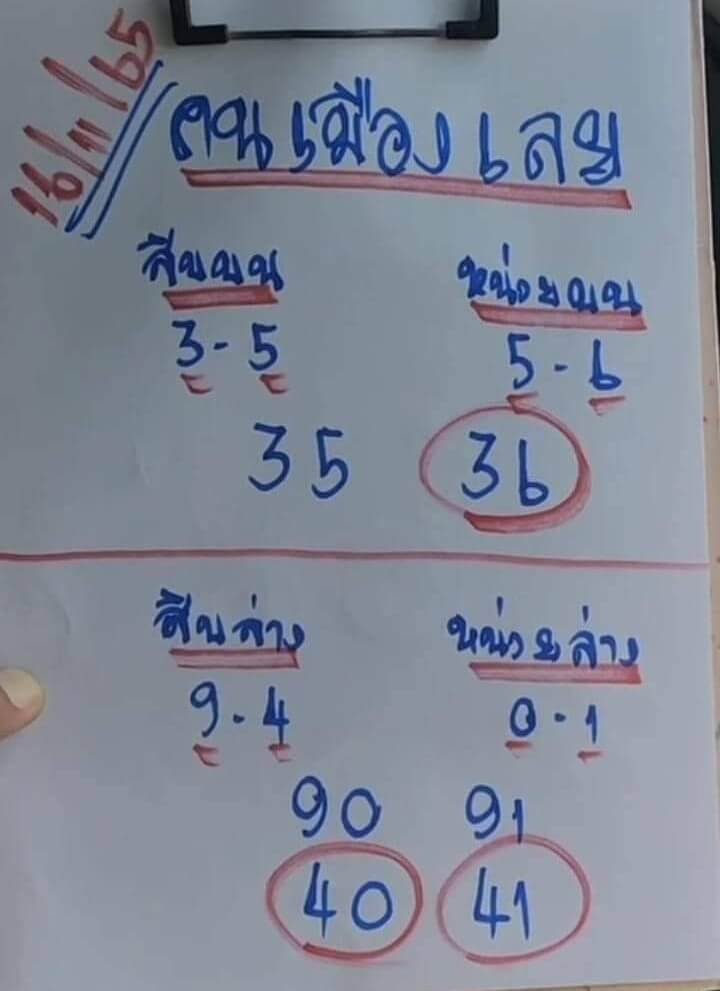 16/11/65
คนเมืองเลย
สิบบน
หน่วยบน
3-5
5-6
35
36
สิบล่าง
หน่วยล่าง
9-4
0-1
90
91
40
41